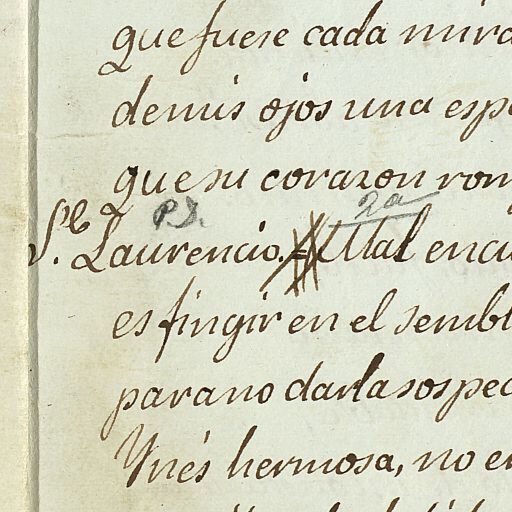 que fuese cada mira
de mis ojos una esp
que su corazon rom
P.D. 2a
Se. Laurencio. = Mal encu
es fingir en el sembl
para no darla sospec
Ynés hermosa, no e